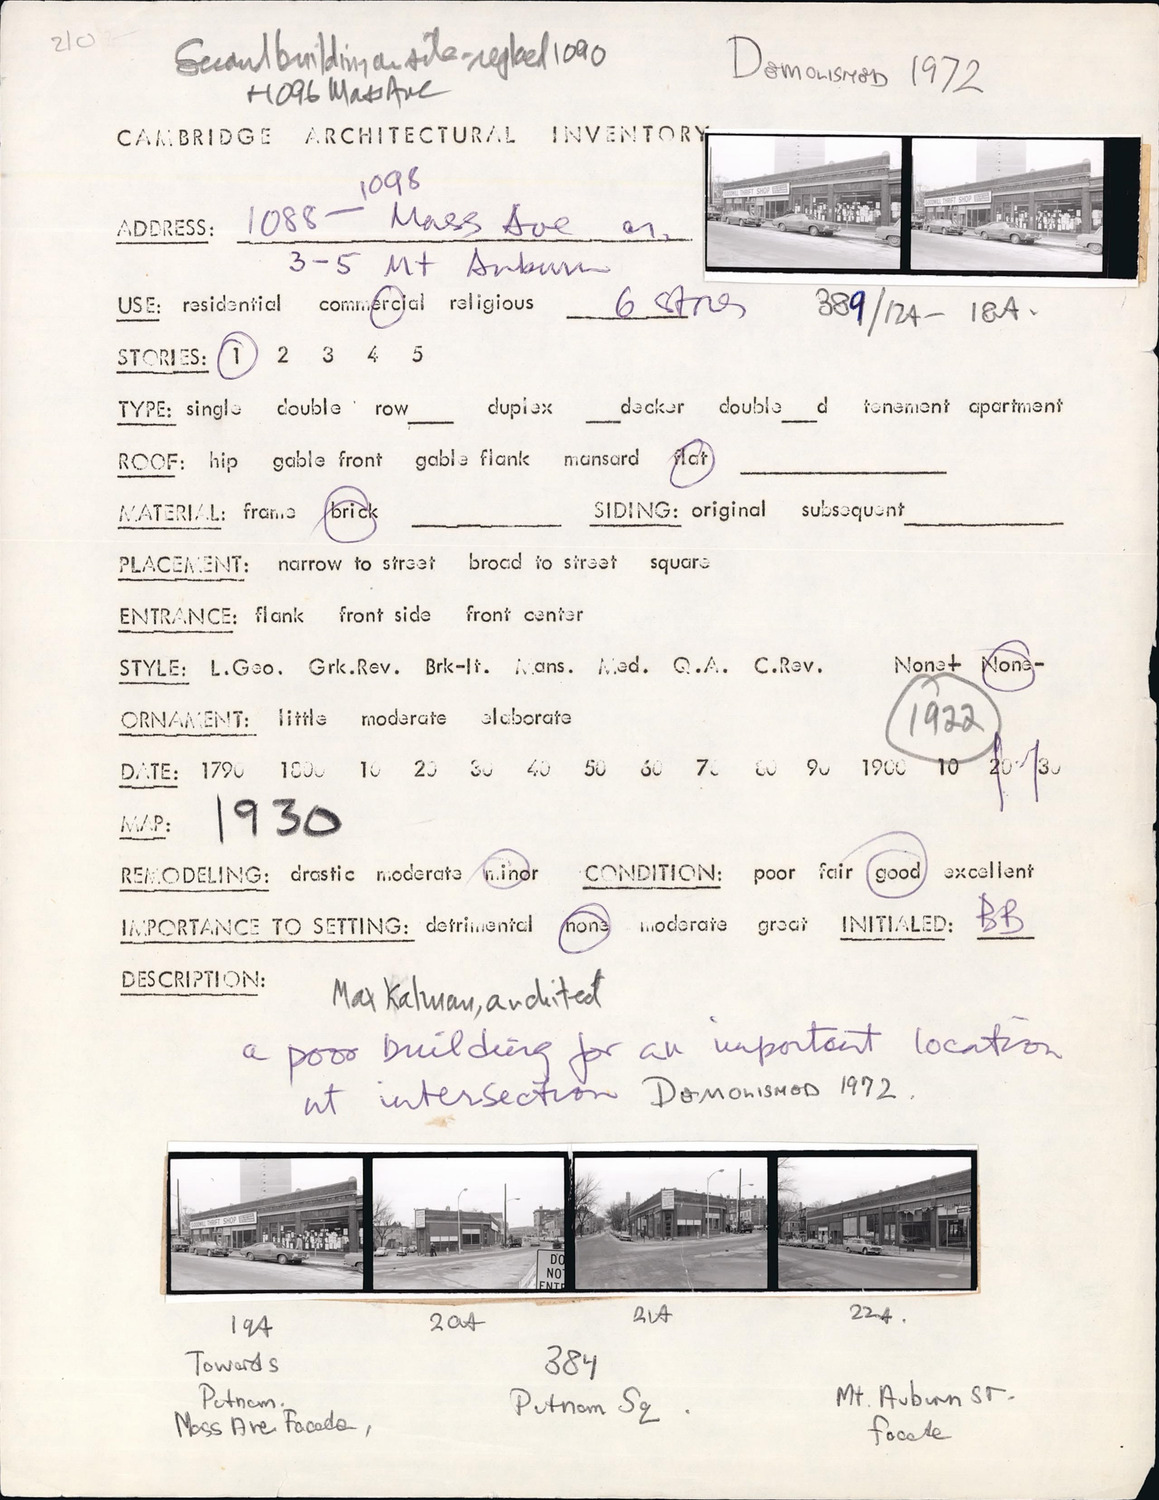 210
Second building on site - replaced 1090
+1096 Mass Ave
Demolished 1972
CAMBRIDGE ARCHITECTURAL INVENTORY
ADDRESS: 1088-1098 Mass Ave on
3-5 Mt Auburn
USE: residential commercial religious 6 stores
389/17A- 18A.
STORIES: 1 2 3 4 5
TYPE: single double row___ duplex ___decker double___d tenement apartment
ROOF: hip gable front gable flank mansard flat
MATERIAL: frame brick SIDING: original subsequent
PLACEMENT: narrow to street broad to street square
ENTRANCE: flank front side front center
STYLE: L.Geo. Grk.Rev. Brk-It. Mans. Med. Q.A. C.Rev. None+ None-
ORNAMENT: little moderate elaborate
1922
DATE: 1790 1800 10 20 30 40 50 60 70 80 90 1900 10 20 30
MAP: 1930
REMODELING: drastic moderate minor CONDITION: poor fair good excellent
IMPORTANCE TO SETTING: detrimental none moderate great INITIALED: BB
DESCRIPTION:
Max Kalman, architect
a poor building for an important location
at intersection Demolished 1972.
THRIFT SHOP
THRIFT SHOP
THRIFT SHOP
DO
NOT
ENTE
19A 20A 21A 22A.
Towards
Putnam.
Mass Ave Facade,
384
Putnam Sq.
Mt. Auburn St-
facade